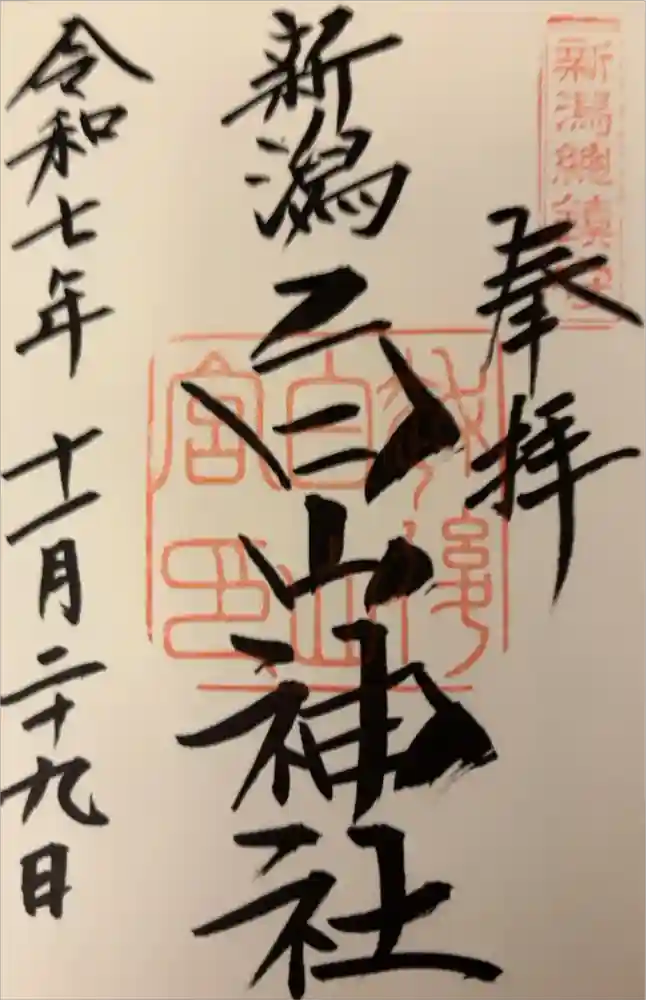 新潟總鎮守
奉拝
新潟白山神社
越後
白山
宮印
令和七年 十一月二十九日